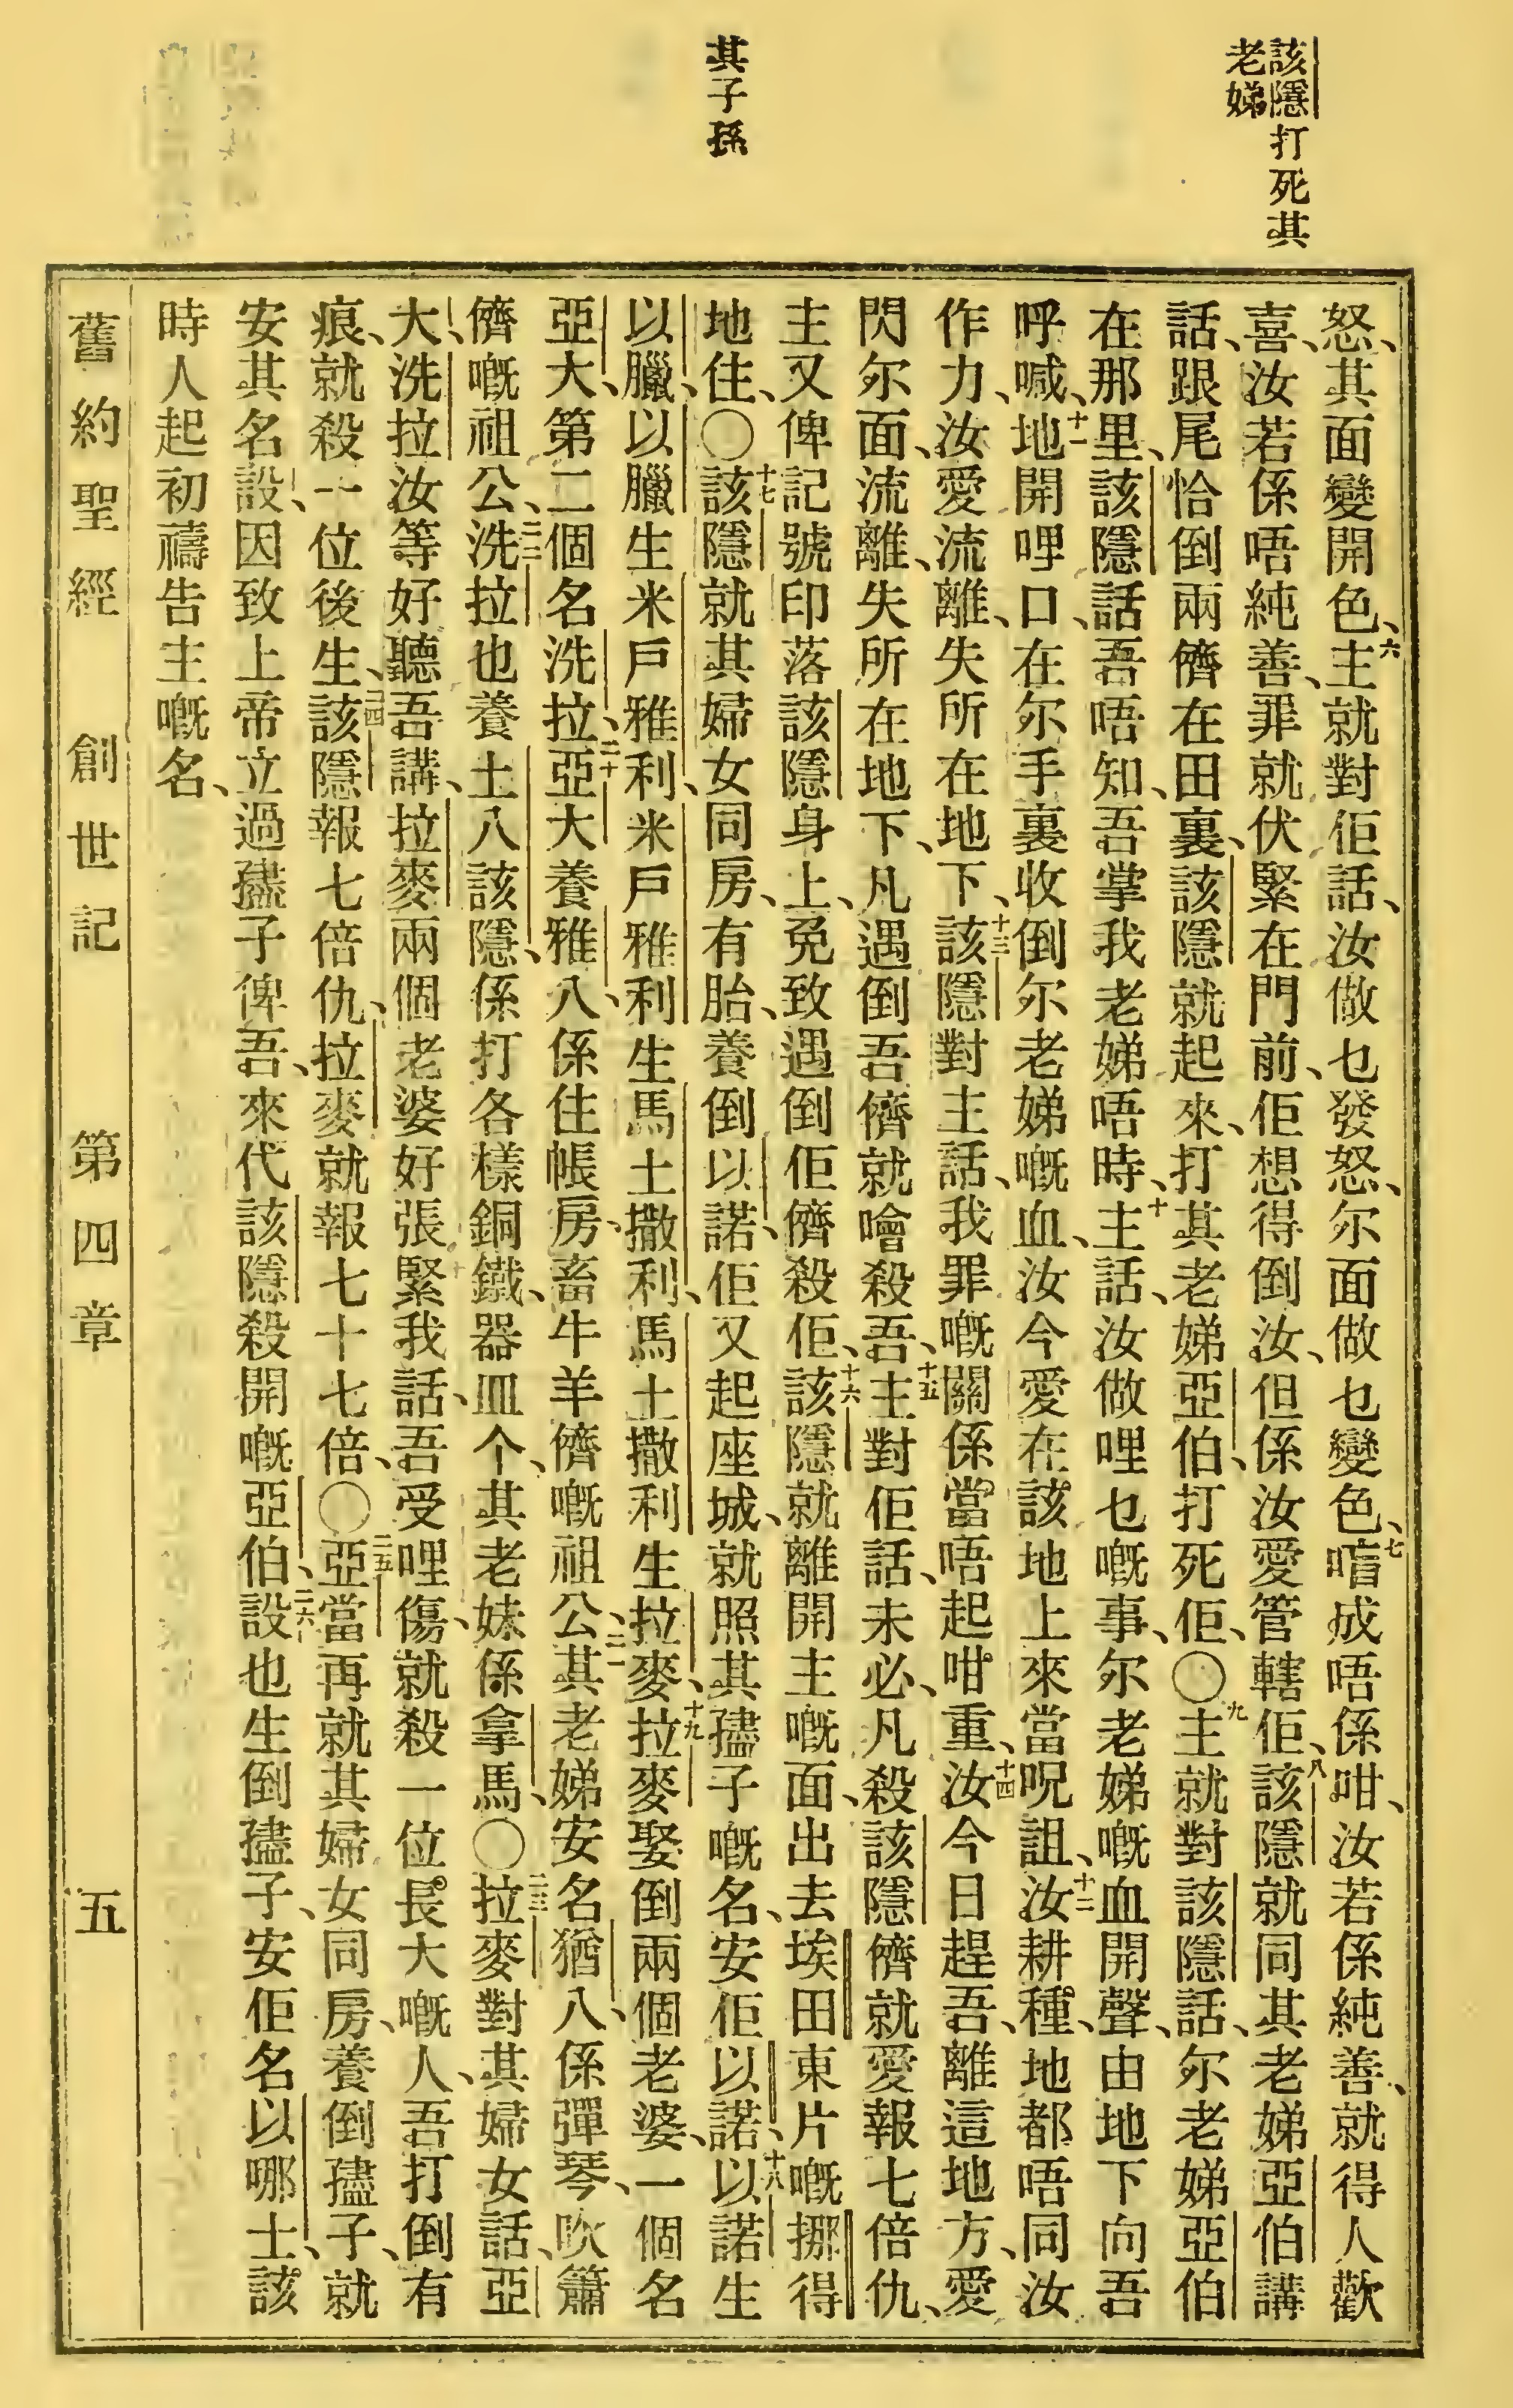 該隱打死其
老娣
其子孫
怒、其面變開色、六主就對佢話、汝做乜發怒、尔面做乜變色、七㖠成唔係咁、汝若係純善、就得人歡
喜、汝若係唔純善、罪就伏緊在門前、佢想得倒汝、但係汝愛管轄佢、八該隱就同其老娣亞伯講
話、跟尾恰倒兩儕在田裏、該隱就起來、打其老娣亞伯、打死佢、〇九主就對該隱話、尔老娣亞伯
在那里、該隱話、吾唔知、吾掌我老娣唔時、十主話、汝做哩乜嘅事、尔老娣嘅血開聲、由地下向吾
呼喊、十一地開哩口、在尔手裏收倒尔老娣嘅血、汝今愛在該地上來當呪詛、十二汝耕種、地都唔同汝
作力、汝愛流離、失所在地下、十三該隱對主話、我罪嘅關係當唔起咁重、十四汝今日趕吾、離這地方、愛
閃尔面、流離、失所在地下、凡遇倒吾儕就噲殺吾、十五主對佢話、未必、凡殺該隱儕就愛報七倍仇、
主又俾記號印落該隱身上、免致遇倒佢儕殺佢、十六該隱就離開主嘅面、出去埃田東片嘅挪得
地住、〇十七該隱就其婦女同房、有胎、養倒以諾、佢又起座城、就照其孻子嘅名、安佢以諾、十八以諾生
以臘、以臘生米戶雅利、米戶雅利生馬土撒利、馬土撒利生拉麥、十九拉麥娶倒兩個老婆、一個名
亞大、第二個名洗拉、二十亞大養雅八、係住帳房、畜牛羊儕嘅祖公、二一其老娣安名猶八、係彈琴、吹簫
儕嘅祖公、二二洗拉也養土八該隱、係打各樣銅鐵、器皿个、其老妹係拿馬、〇二三拉麥對其婦女話、亞
大、洗拉汝等好聽吾講、拉麥兩個老婆好張緊我話、吾受哩傷、就殺一位長大嘅人、吾打倒有
痕、就殺一位後生、二四該隱報七倍仇、拉麥就報七十七倍、〇二五亞當再就其婦女同房、養倒孻子、就
安其名設、因致上帝立過孻子俾吾、來代該隱殺開嘅亞伯、二六設也生倒孻子、安佢名以哪士、該
時人起初禱告主嘅名、
舊約聖經 創世記 第四章 五